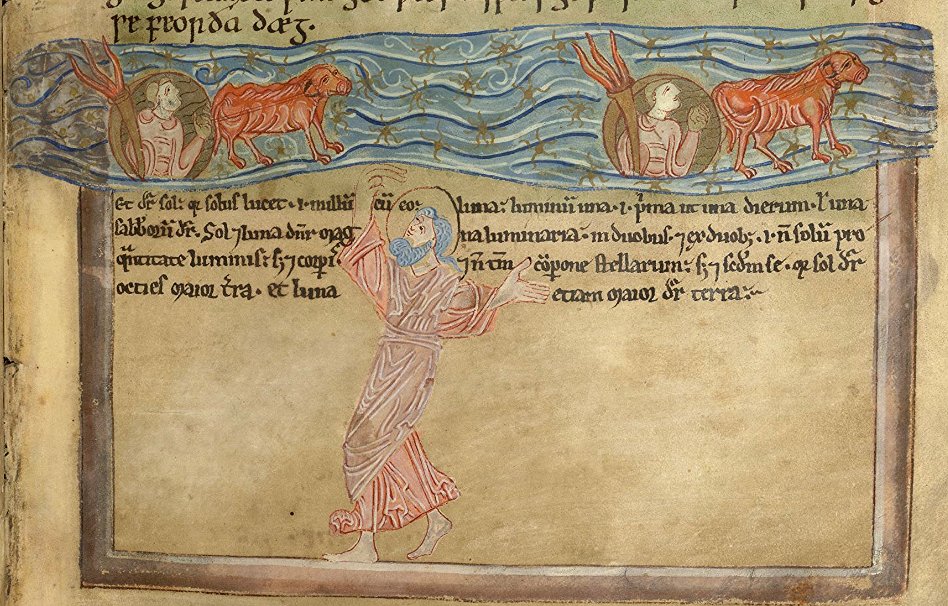 se feorða dæg.
Et dr̄ sol: qr solus lucet · i · nullū cū eo: luna: luminū una · i · p̄ma ut una dierum · ł una
sabboꝝ dr̄. Sol ⁊ luna dn̄r mag na luminaria · in duobus · ⁊ ex duobꝫ · i · n̄ solū pro
q̄ntitate luminis: sꝫ ⁊ corp̄i ⁊ n̄ tm̄ cōpone stellarum: sꝫ ⁊ scdm se · qr sol dr̄
octies maior t̄ra · et luna etiam maior dr̄ terra: